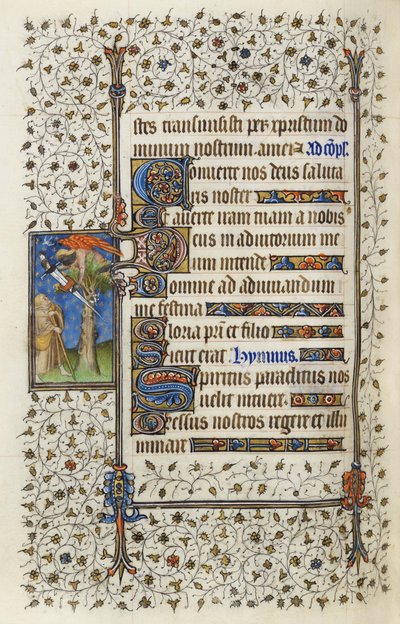 stes transmisisti per xpristum do
minum nostrum amen Ad co͞pl'.
Conuerte nos deus saluta
ris noster
Et auerte iram tuam a nobis
Deus in adiutorium me
um intende
Domine ad adiuuandum
me festina
Gloria pri͞ et filio
Sicut erat Hymnus.
Spiritus paraclitus nos
uelit iuuere.
Gressus nostros regere et illu
minare